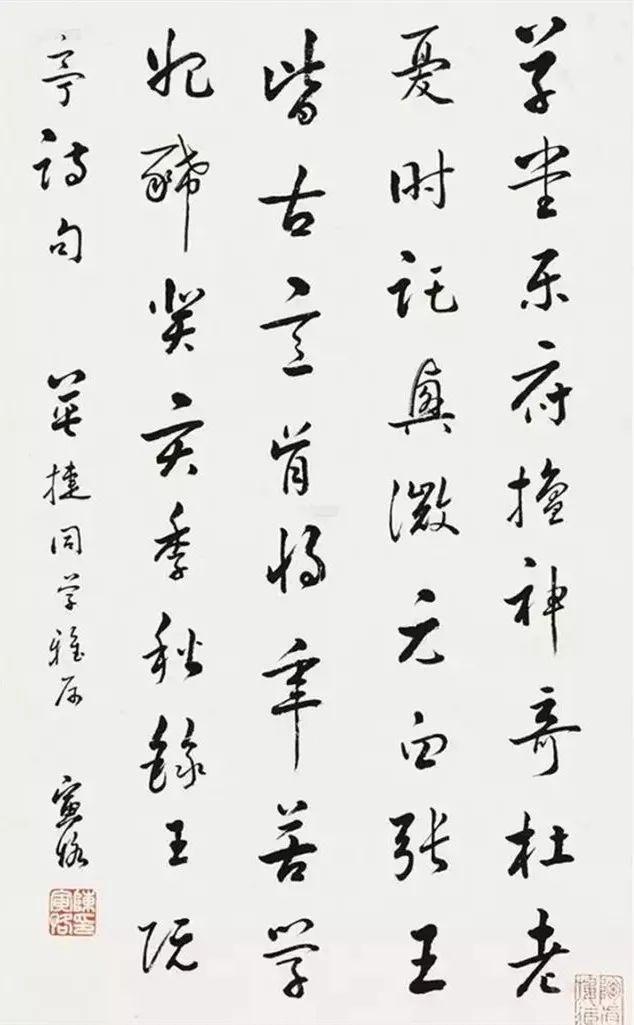 草堂樂府擅神奇杜老
憂時託興微元白張王
皆古意肯將辛苦學
妃豨癸亥季秋錄王阮
亭詩句 英捷同學雅屬 寅恪
陳印寅恪